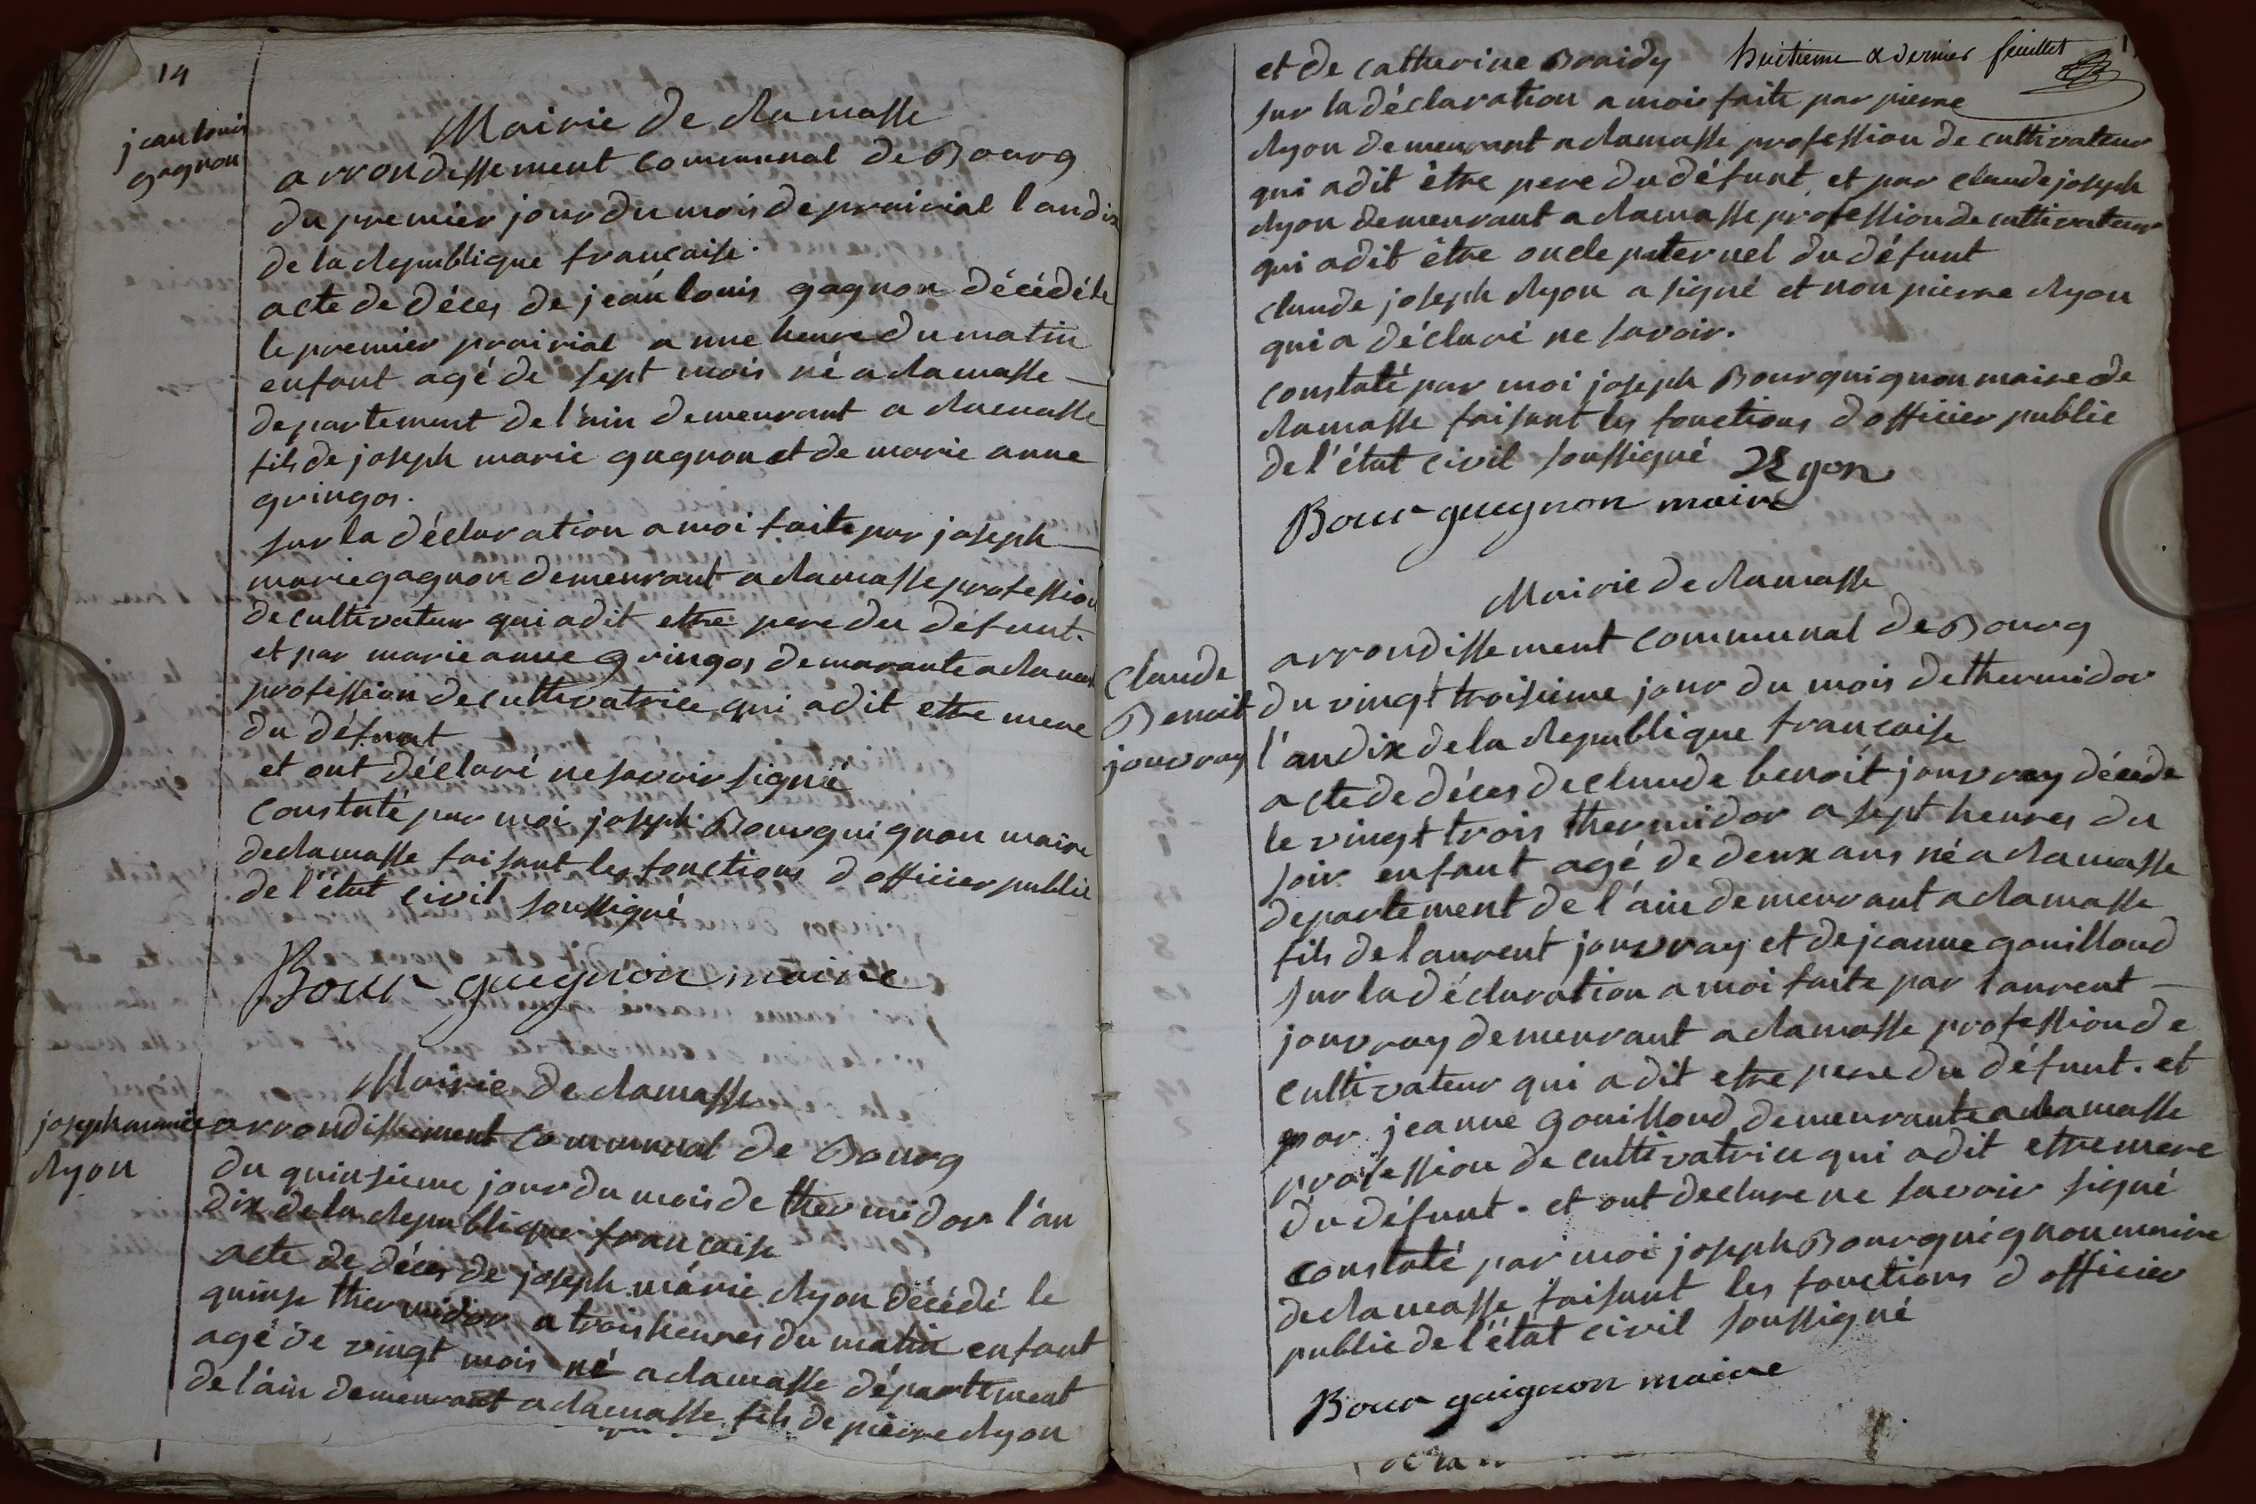 14
jean louis
gagnon
Mairie de Ramasse
arrondissement communal de Bourg
du premier jour du mois de prairial l'an dix
de la Republique francaise.
acte de déces de jean louis gagnon décédé le
le premier prairial a une heure du matin
enfant agé de sept mois né a Ramasse
departement de l'ain demeurant a Ramasse
fils de joseph marie gagnon et de marie anne
gringos.
sur la déclaration a moi faite par joseph
marie gagnon demeurant a Ramasse profession
de cultivateur qui a dit etre pere du défunt.
et par marie anne gringos demarante a Ramas
profession de cultivatrice qui a dit etre mere
du défunt
et ont déclaré ne savoir signé
constaté par moi joseph Bourguignon maire
de Ramasse faisant les fonctions d officier public
de l'état civil soussigné
Bourguegnon maire
Mairie de Ramasse
joseph marie
Ryon
arrondissement communal de Bourg
du quinsieme jour du mois de thermidor l'an
dix de la Republique francaise
acte de déces de joseph marie Ryon décédé le
quinse thermidor a trois heures du matin enfant
agé de vingt mois né a Ramasse département
de l'ain demeurant a Ramasse fils de pierre Ryon
et de catherine Braidy
huitieme & dernier feuillet
sur la déclaration a moi faite par pierre
Ryon demeurant a Ramasse profession de cultivateur
qui a dit être pere du défunt, et par claude joseph
Ryon demeurant a Ramasse profession de cultivateur
qui a dit être oncle paternel du défunt
claude joseph Ryon a signé et non pierre Ryon
qui a déclaré ne savoir.
constaté par moi joseph Bourguignon maire de
Ramasse faisant les fonctions d officier public
de l'état civil soussigné Rgon
Bourguegnon maire
Mairie de Ramasse
arrondissement communal de Bourg
claude
Benoit
jouvray
du vingt troisieme jour du mois de thermidor
l'an dix de la Republique francaise
acte de déces de claude benoit jouvray décédé
le vingt trois thermidor a sept heures du
soir enfant agé de deux ans né a Ramasse
departement de l'ain demeurant a Ramasse
fils de laurent jouvray et de jeanne gouilloud
sur la déclaration a moi faite par laurent
jouvray demeurant a Ramasse profession de
cultivateur qui a dit etre pere du défunt. et
par jeanne gouilloud demeurante a Ramasse
profession de cultivatrice qui a dit etre mere
du défunt. et ont declare ne savoir signé
constaté par moi joseph Bourguignon maire
de Ramasse faisant les fonctions d officier
public de l'état civil soussigné
Bourguignon maire